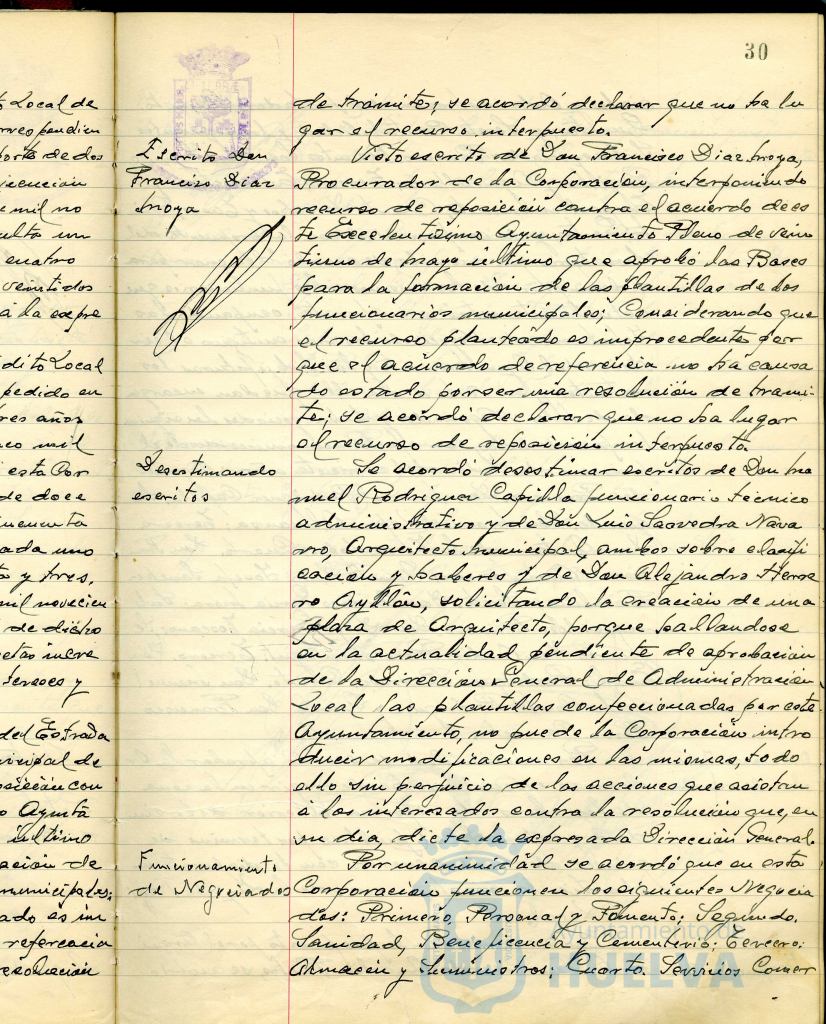 30
to Local de
rrespondien
porte de dos
mil no
cuatro
veintidos
á la expre
dito Local
pedido en
tres años
mil
esta Cor
de doce
cincuenta
cada uno
ta y tres,
mil novecien
de dicho
tereses y
del Estrada
nicipal de
posición con
o Ayunta
último
ación de
municipales;
ado es im
referencia
resolución
Escrito Don
Francisco Diaz
Moya
Desestimando
escritos
Funcionamiento
de Negociados
de trámite; se acordó declarar que no ha lu
gar el recurso interpuesto.
Visto escrito de Don Francisco Diaz Moya,
Procurador de la Corporación, interponiendo
recurso de reposición contra el acuerdo de es
te Excelentísimo Ayuntamiento Pleno de vein
tiuno de Mayo último que aprobó las Bases
para la formación de las plantillas de los
funcionarios municipales; Considerando que
el recurso planteado es improcedente por
que el acuerdo de referencia no ha causa
do estado por ser una resolución de trami
te; se acordó declarar que no ha lugar
al recurso de reposición interpuesto.
Se acordó desestimar escritos de Don Ma
nuel Rodriguez Capilla funcionario técnico
administrativo y de Don Luis Saavedra Nava
rro, Arquitecto Municipal, ambos sobre clasifi
cación y haberes y de Don Alejandro Herre
ro Ayllón, solicitando la creación de una
plaza de Arquitecto, porque hallandose
en la actualidad pendiente de aprobación
de la Dirección General de Administración
Local las plantillas confeccionadas por este
Ayuntamiento, no puede la Corporación intro
ducir modificaciones en las mismas, todo
ello sin perjuicio de las acciones que asistan
á los interesados contra la resolución que, en
su dia, dicte la expresada Dirección General.
Por unanimidad se acordó que en esta
Corporación funcionen los siguientes Negocia
dos: Primero, Personal y Fomento; Segundo.
Sanidad, Beneficencia y Cementerio; Tercero:
Almacén y Suministros; Cuarto. Servicios Comer
Ayuntamiento de
HUELVA